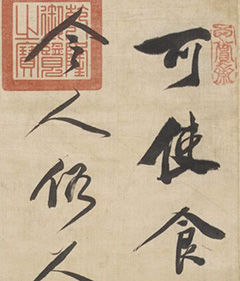 可使食
令人俗人
乾隆御覽之寶